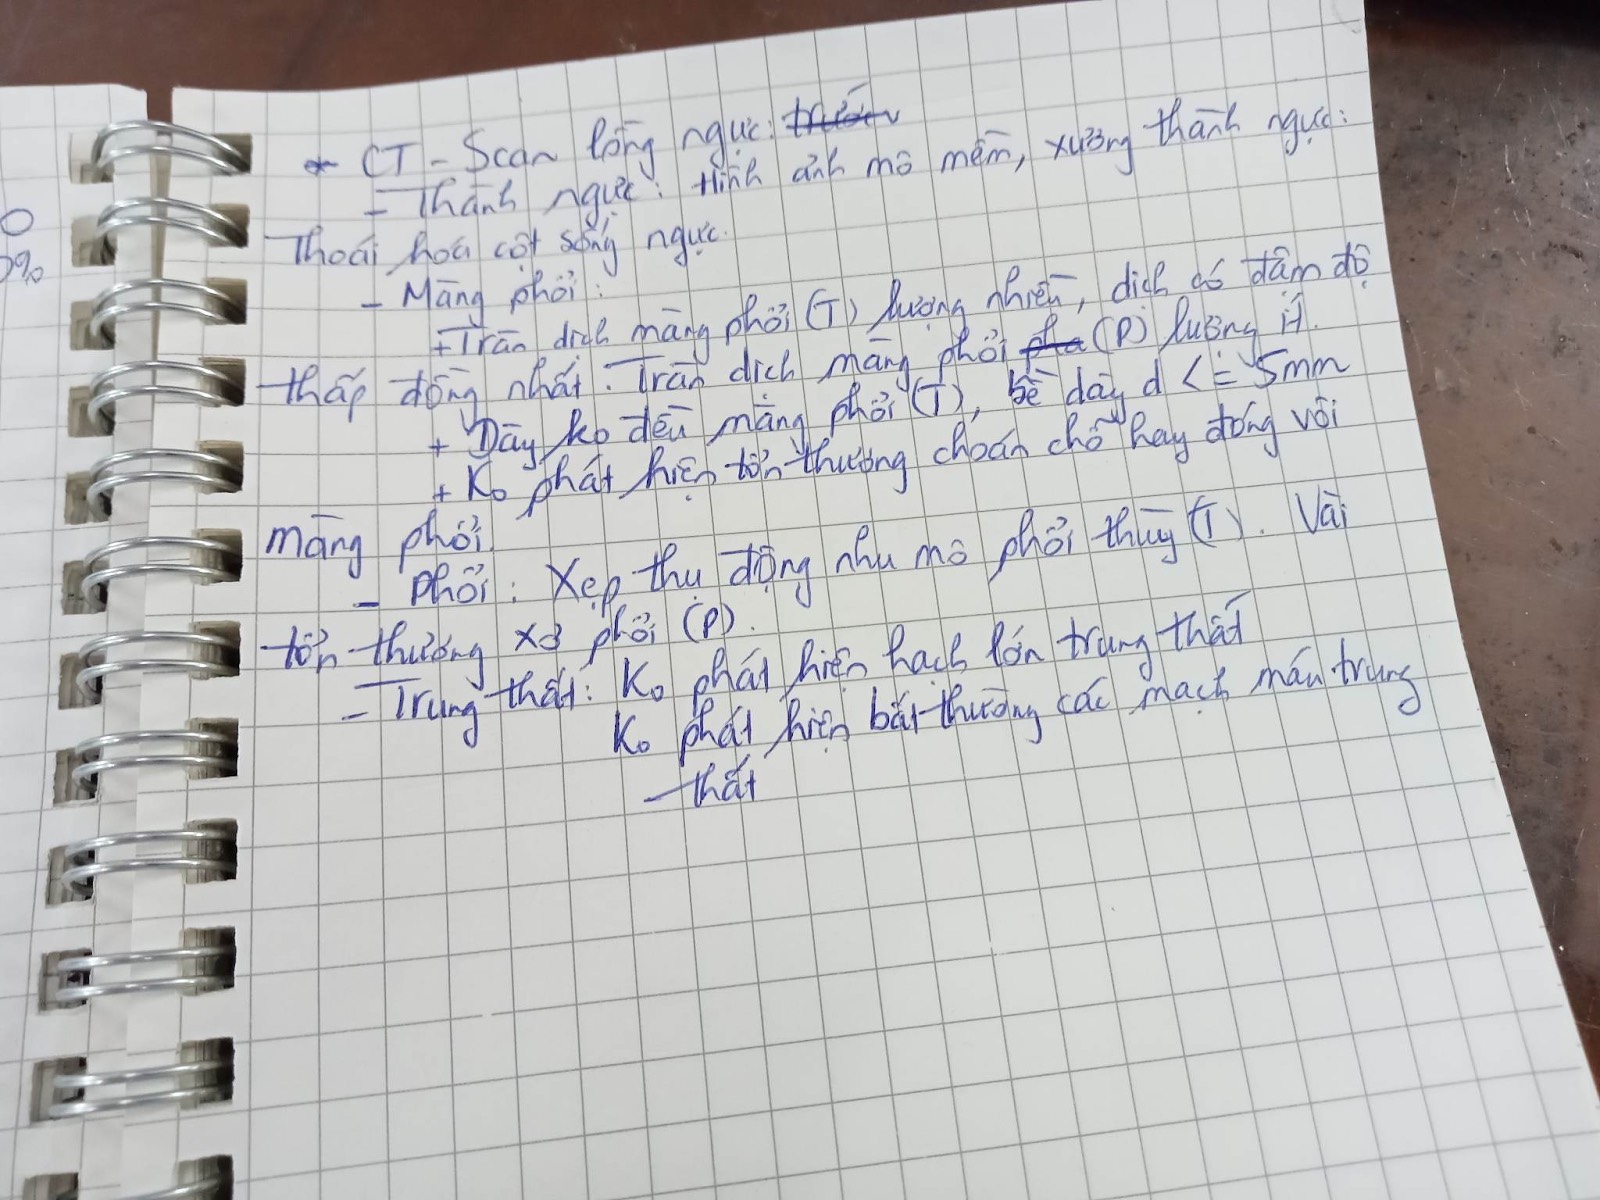 * CT - Scan lồng ngực:
- Thành ngực: Hình ảnh mô mềm, xương thành ngực:
Thoái hoá cột sống ngực.
- Màng phổi:
+ Tràn dịch màng phổi (T) lượng nhiều, dịch có đậm độ
thấp đồng nhất. Tràn dịch màng phổi (P) lượng ít.
+ Dày ko đều màng phổi (T), bề dày d <= 5mm
+ Ko phát hiện tổn thương choán chỗ hay đóng vôi
màng phổi.
- Phổi: Xẹp thụ động nhu mô phổi thùy (T). Vài
tổn thương xơ phổi (P).
- Trung thất: Ko phát hiện hạch lớn trung thất
Ko phát hiện bất thường các mạch máu trung
thất
0
0%